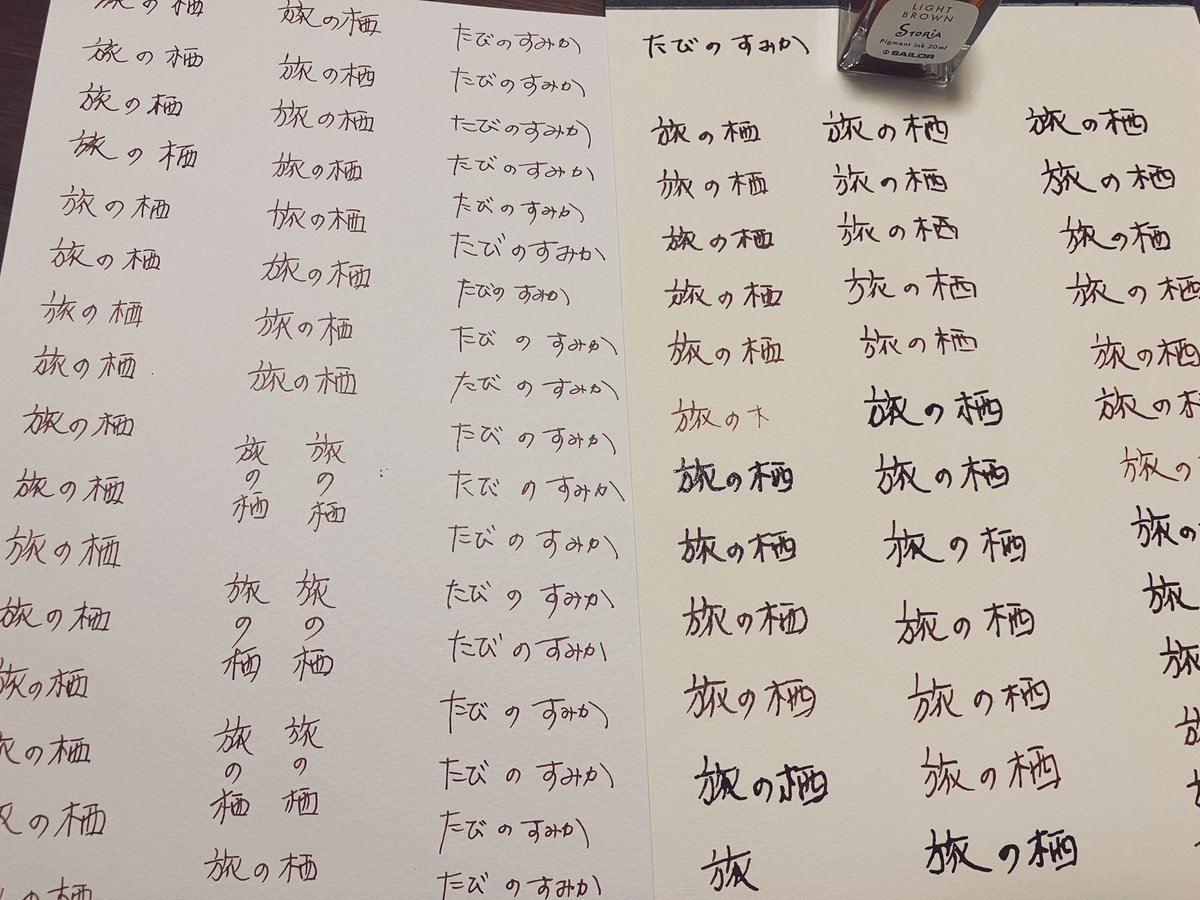 の栖
旅の栖
旅の栖
旅の栖
旅の栖
旅の栖
旅の栖
旅の栖
旅の栖
旅の栖
旅の栖
旅の栖
旅の栖
の栖
の栖
の栖
旅の栖
旅の栖
旅の栖
旅の栖
旅の栖
旅の栖
旅の栖
旅の栖
旅の栖
旅の栖
旅の栖
旅の栖
旅の栖
旅の栖
旅の栖
たびのすみか
たびのすみか
たびのすみか
たびのすみか
たびのすみか
たびのすみか
たびのすみか
たびのすみか
たびのすみか
たびのすみか
たびのすみか
たびのすみか
たびのすみか
たびのすみか
たびのすみか
たびのすみか
たびのすみか
たびのすみか
たびのすみか
LIGHT
BROWN
STORiA
Pigment ink 20ml
SAILOR
旅の栖
旅の栖
旅の栖
旅の栖
旅の栖
旅の木
旅の栖
旅の栖
旅の栖
旅の栖
旅の栖
旅
旅の栖
旅の栖
旅の栖
旅の栖
旅の栖
旅の栖
旅の栖
旅の栖
旅の栖
旅の栖
旅の栖
旅の栖
旅の栖
旅の栖
旅の栖
旅の栖
旅の栖
旅の栖
旅の
旅の
旅
旅